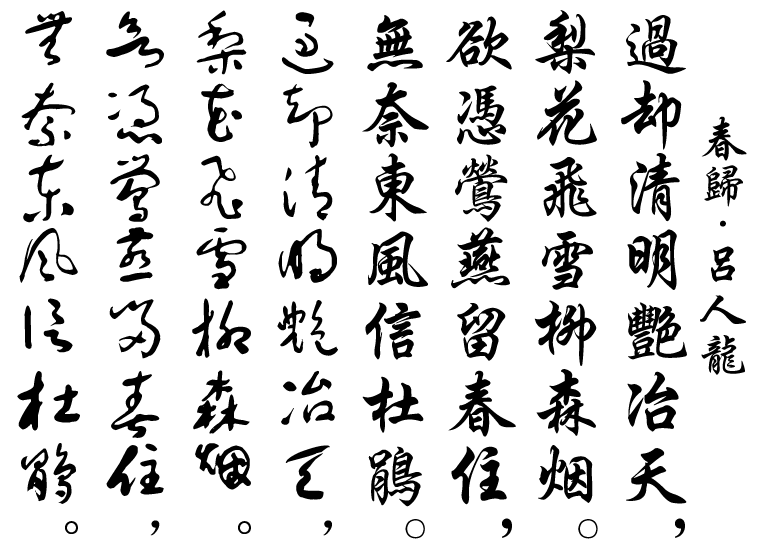 春歸·呂人龍
過却清明艷冶天，
梨花飛雪柳森烟。
欲憑鶯燕留春住，
無奈東風信杜鵑。
過却清明艷冶天，
梨花飛雪柳森烟。
欲憑鶯燕留春住，
無奈東風信杜鵑。